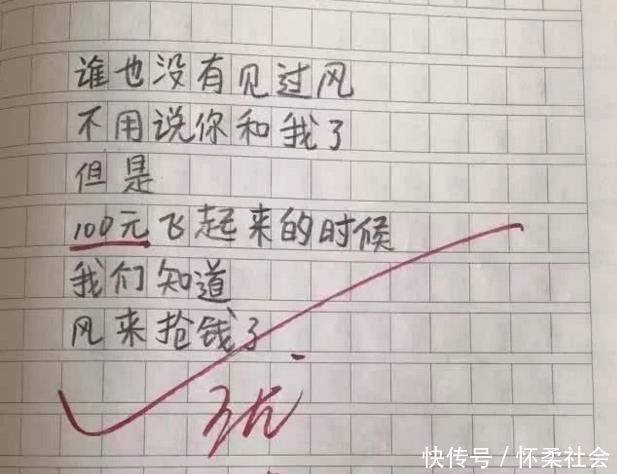 谁也没有见过风
不用说你和我了
但是
100元飞起来的时候
我们知道
风来抢钱了
优
快传号/怀柔社会